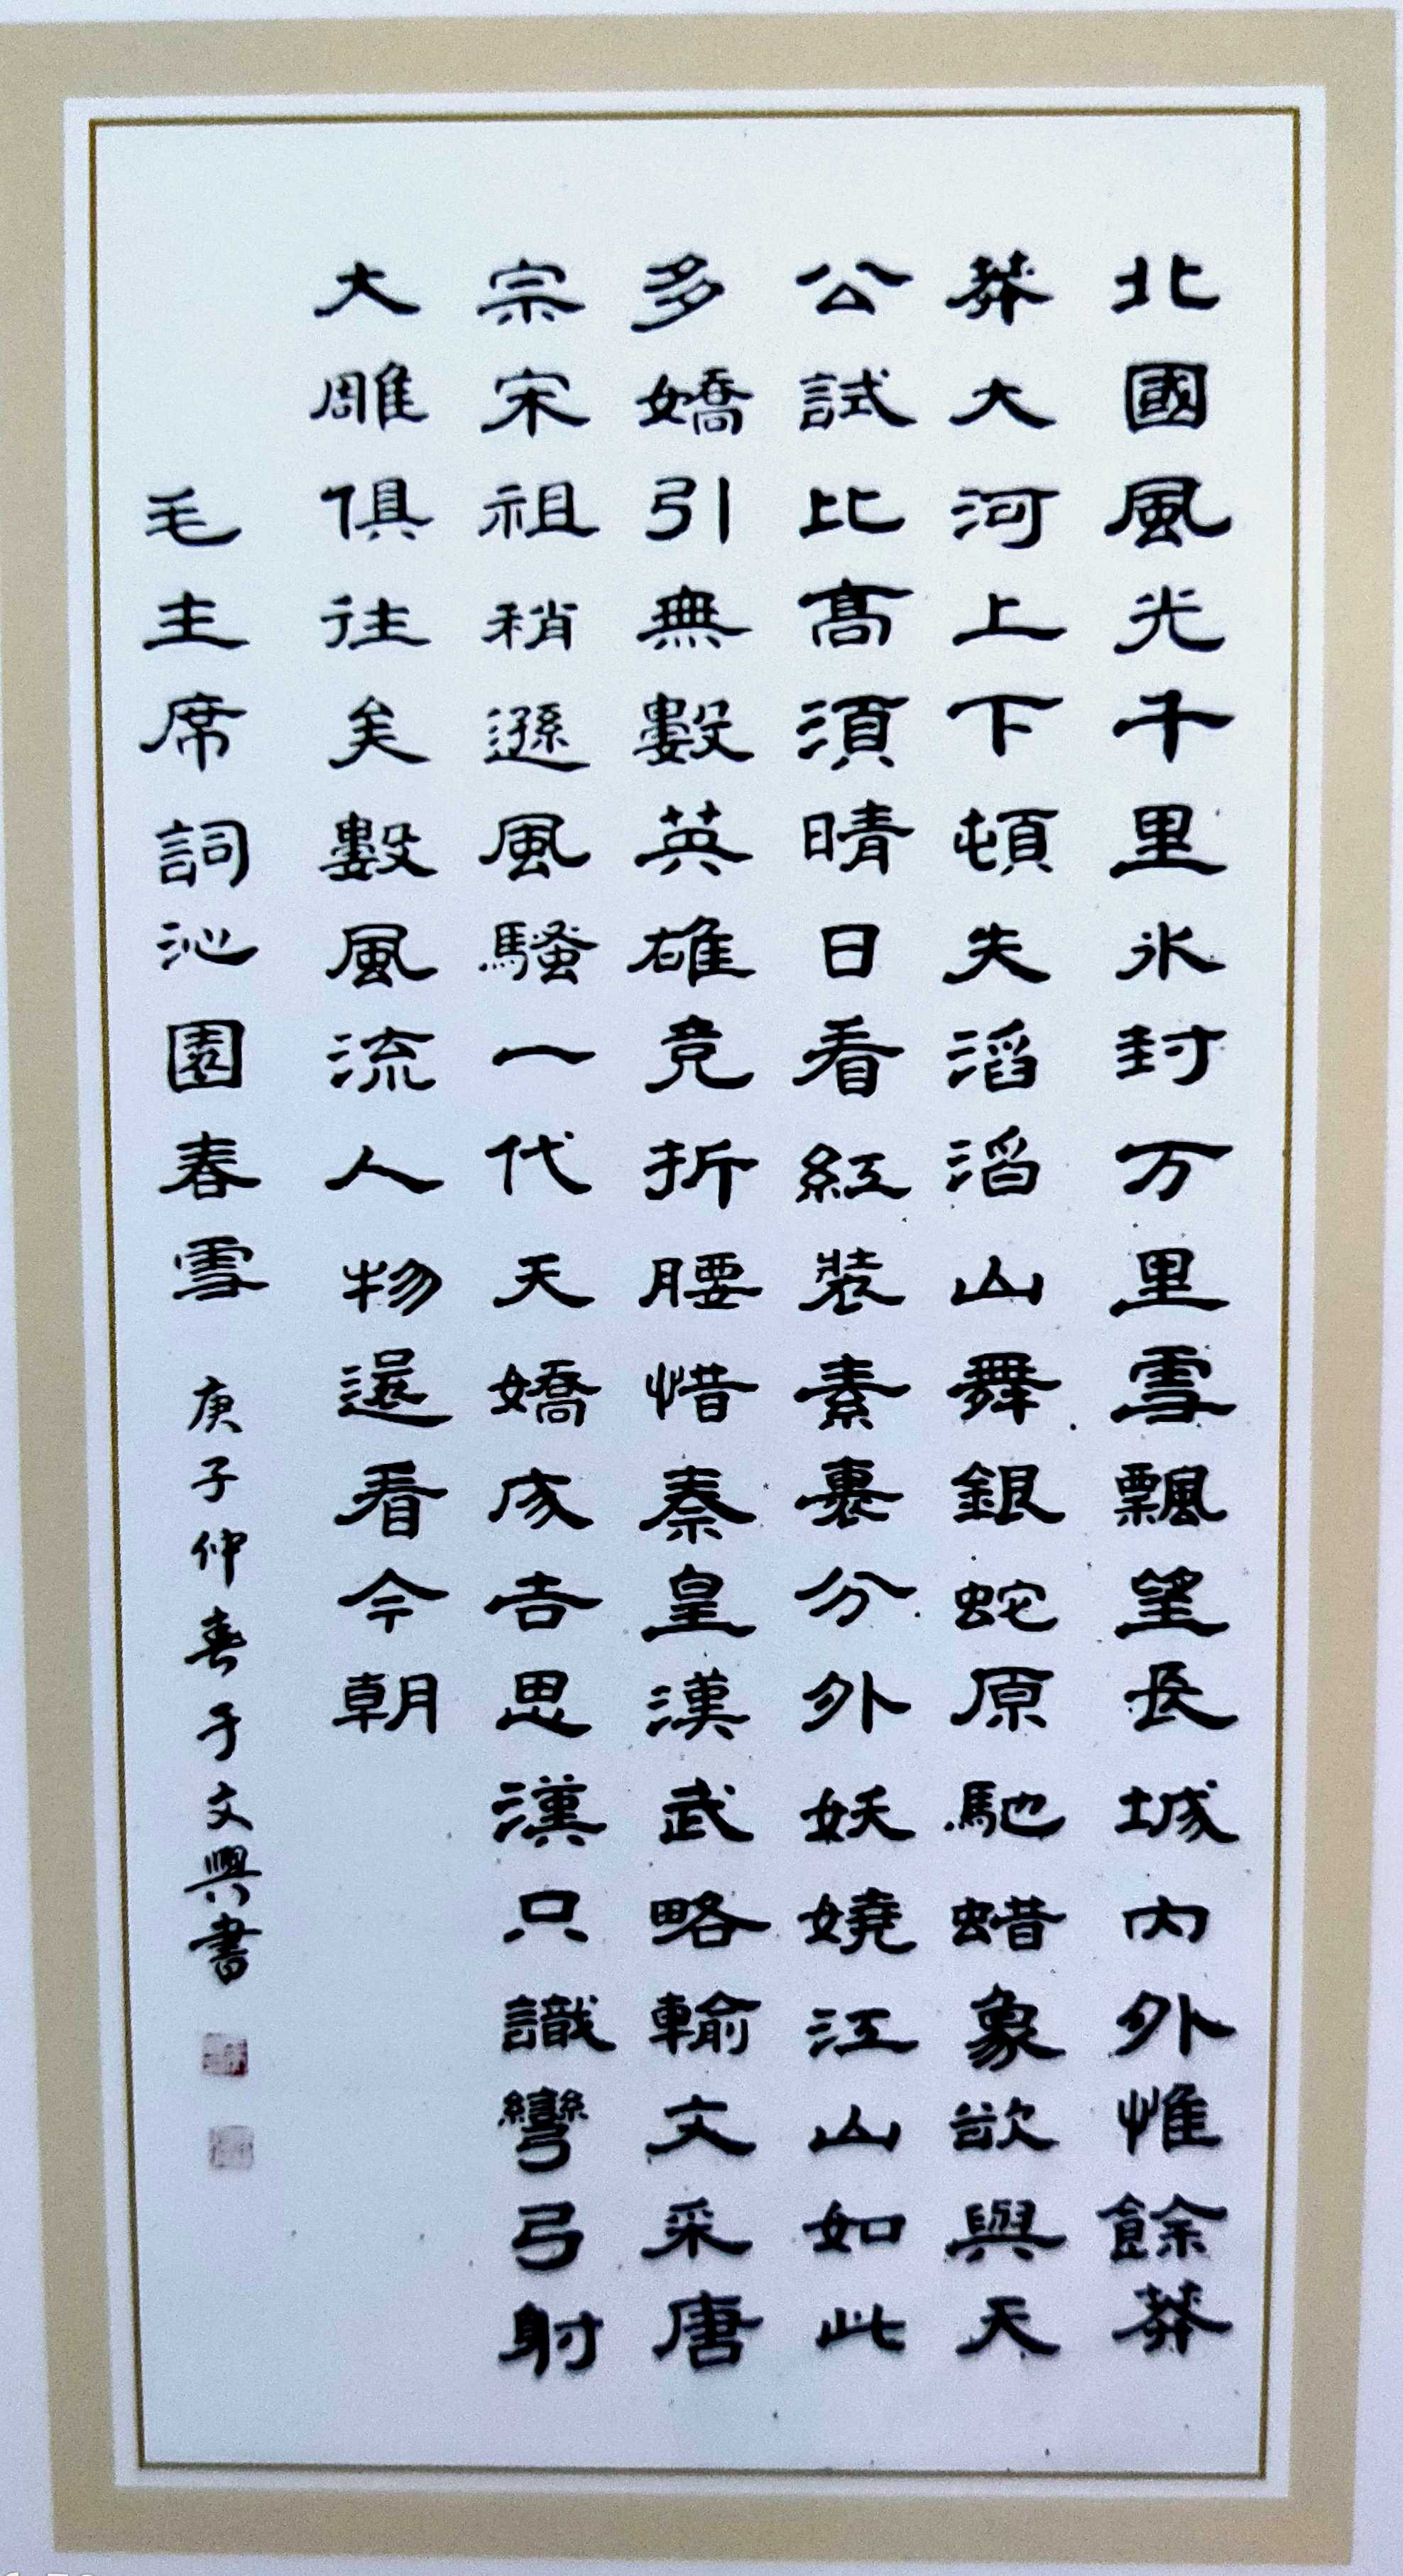 北國風光千里冰封万里雪飄望長城內外惟餘莽
莽大河上下頓失滔滔山舞銀蛇原馳蜡象欲與天
公試比高須晴日看紅裝素裹分外妖嬈江山如此
多嬌引無數英雄竞折腰惜秦皇漢武略輸文采唐
宗宋祖稍遜風騷一代天嬌成吉思漢只識彎弓射
大雕俱往矣數風流人物還看今朝
毛主席詞沁園春雪 庚子仲春于文興書